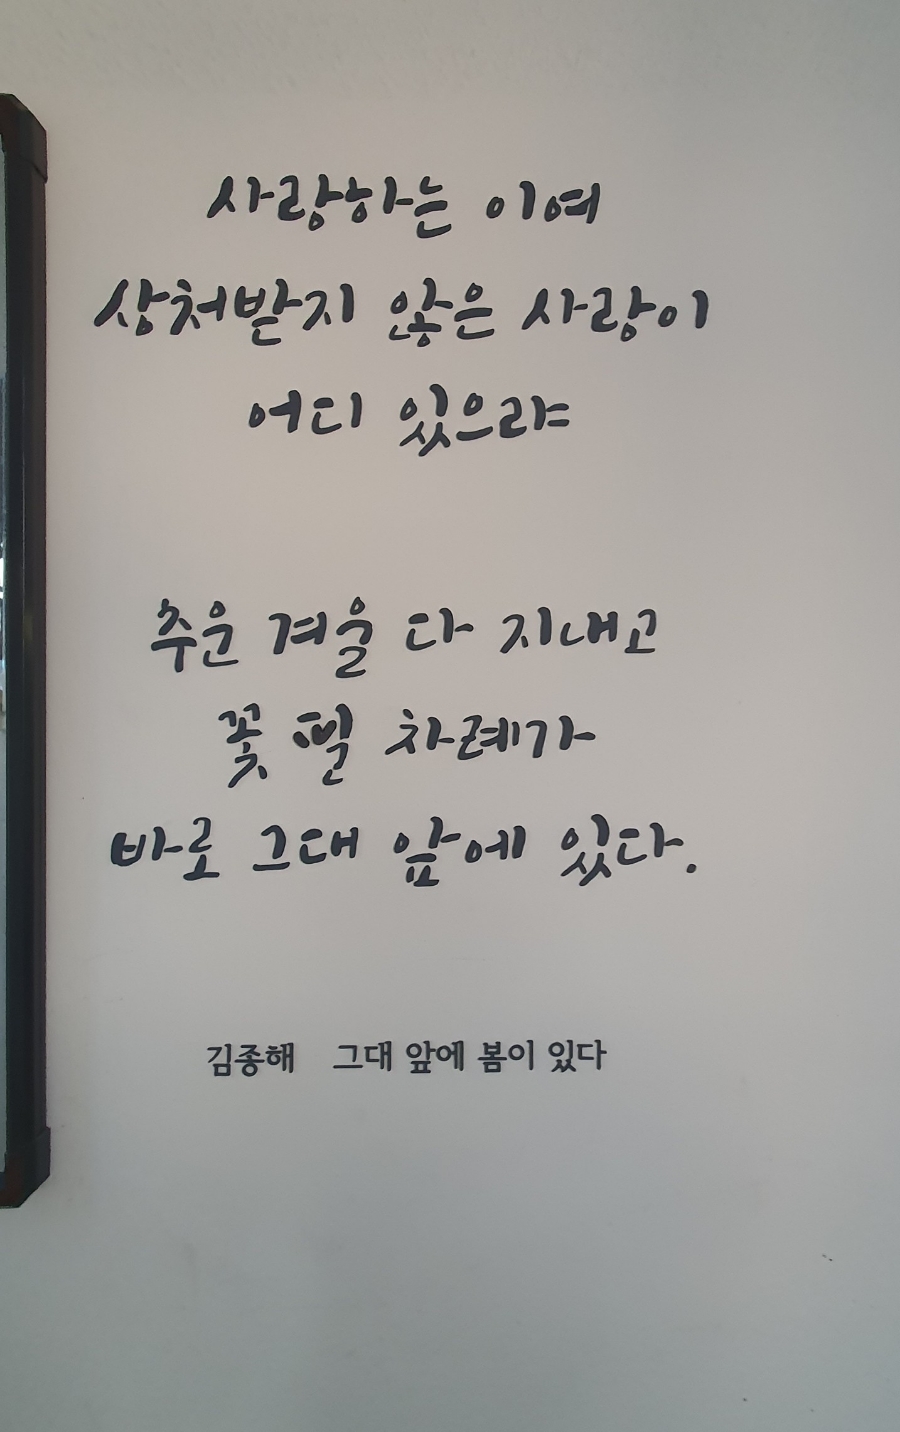 사랑하는 이여
상처받지 않은 사랑이
어디 있으랴
추운 겨울 다 지내고
꽃 필 차례가
바로 그대 앞에 있다.
김종해 그대 앞에 봄이 있다